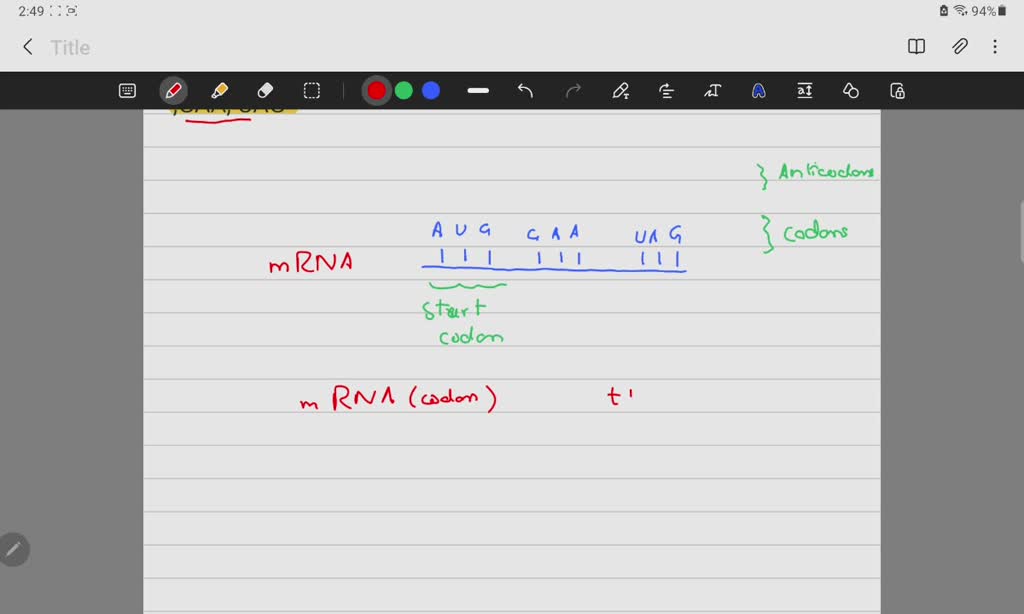 2:49 94%
Title
} Anticodons
A U G G A A U A G } codons
mRNA
Start
codon
mRNA (codon) t